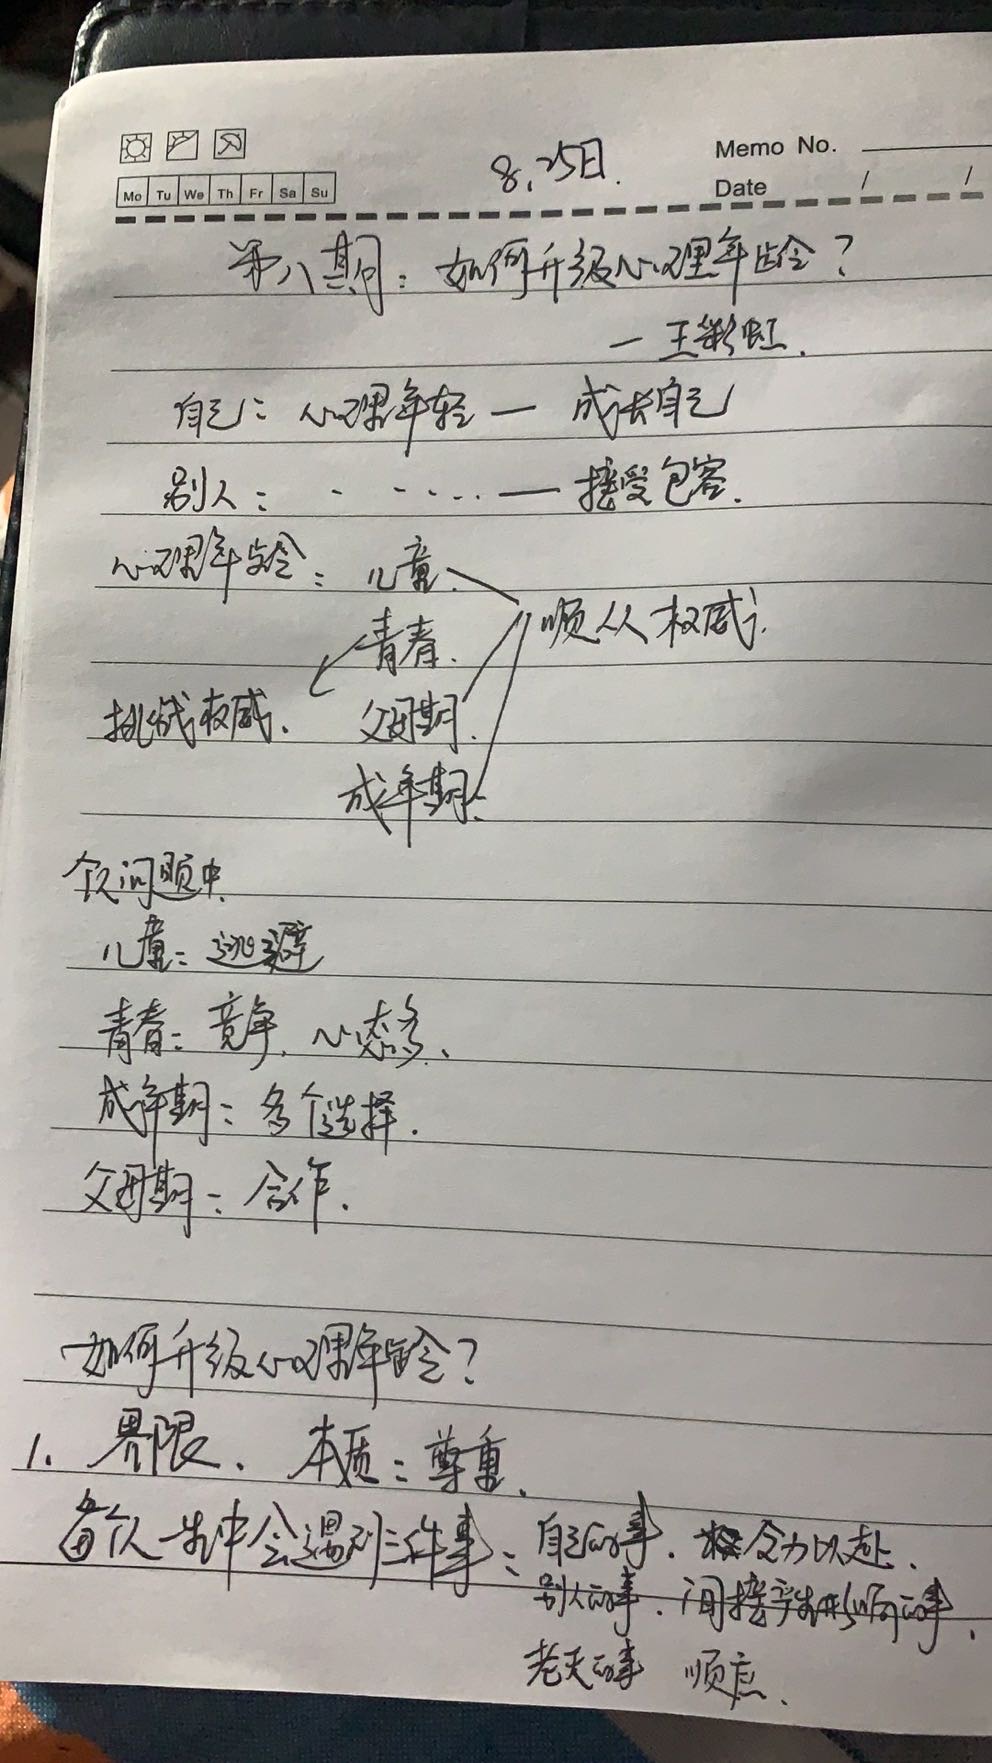 Memo No.
Mo Tu We Th Fr Sa Su
8.25日.
Date / /
第八期：如何升级心理年龄？
— 王彩虹.
自己：心理年轻 — 成长自己
别人：- - ‥‥ — 接受包容.
心理年龄：儿童.
青春.
顺从权威.
挑战权威. 父母期.
成年期：
问题中.
儿童：逃避
青春：竞争.心态多.
成年期：多个选择.
父母期：合作.
如何升级心理年龄？
1. 界限. 本质：尊重.
每个人一生中会遇到三件事：自己的事.全力以赴.
别人的事.间接产生影响的事.
老天的事 顺应.